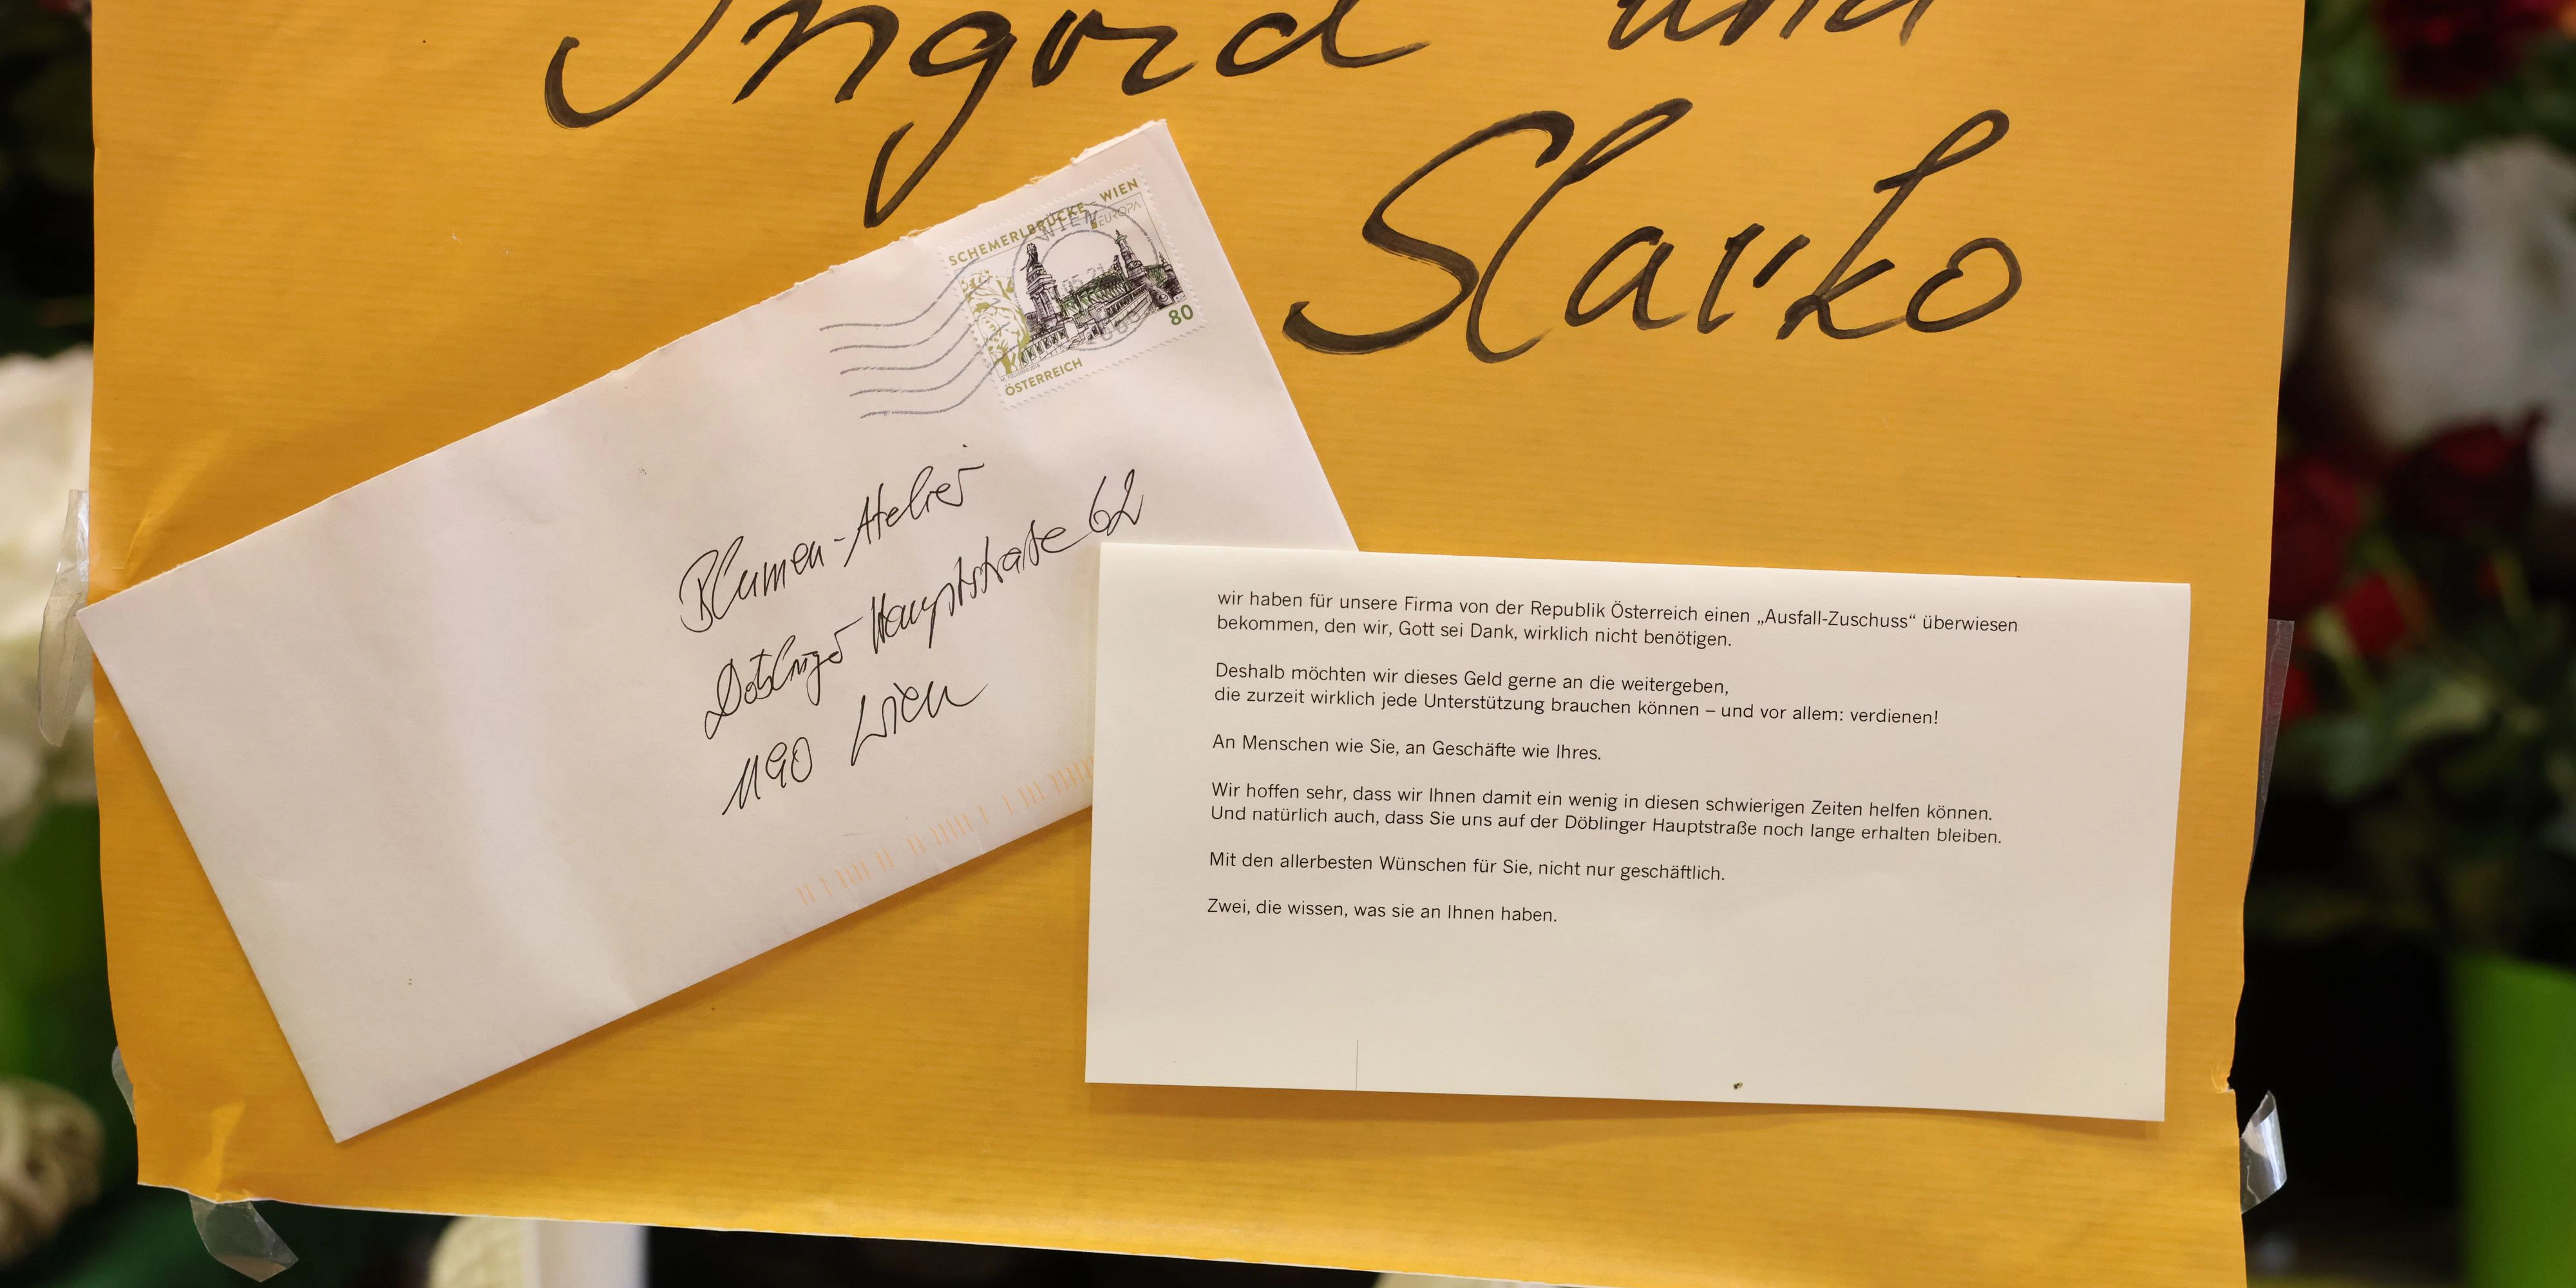 Ingrid und
Slavko
SCHEMERLBRÜCKE - WIEN
EUROPA
WIEN
80
ÖSTERREICH
Blumen-Atelier
Döblinger Hauptstraße 62
1190 Wien
wir haben für unsere Firma von der Republik Österreich einen „Ausfall-Zuschuss“ überwiesen
bekommen, den wir, Gott sei Dank, wirklich nicht benötigen.
Deshalb möchten wir dieses Geld gerne an die weitergeben,
die zurzeit wirklich jede Unterstützung brauchen können – und vor allem: verdienen!
An Menschen wie Sie, an Geschäfte wie Ihres.
Wir hoffen sehr, dass wir Ihnen damit ein wenig in diesen schwierigen Zeiten helfen können.
Und natürlich auch, dass Sie uns auf der Döblinger Hauptstraße noch lange erhalten bleiben.
Mit den allerbesten Wünschen für Sie, nicht nur geschäftlich.
Zwei, die wissen, was sie an Ihnen haben.